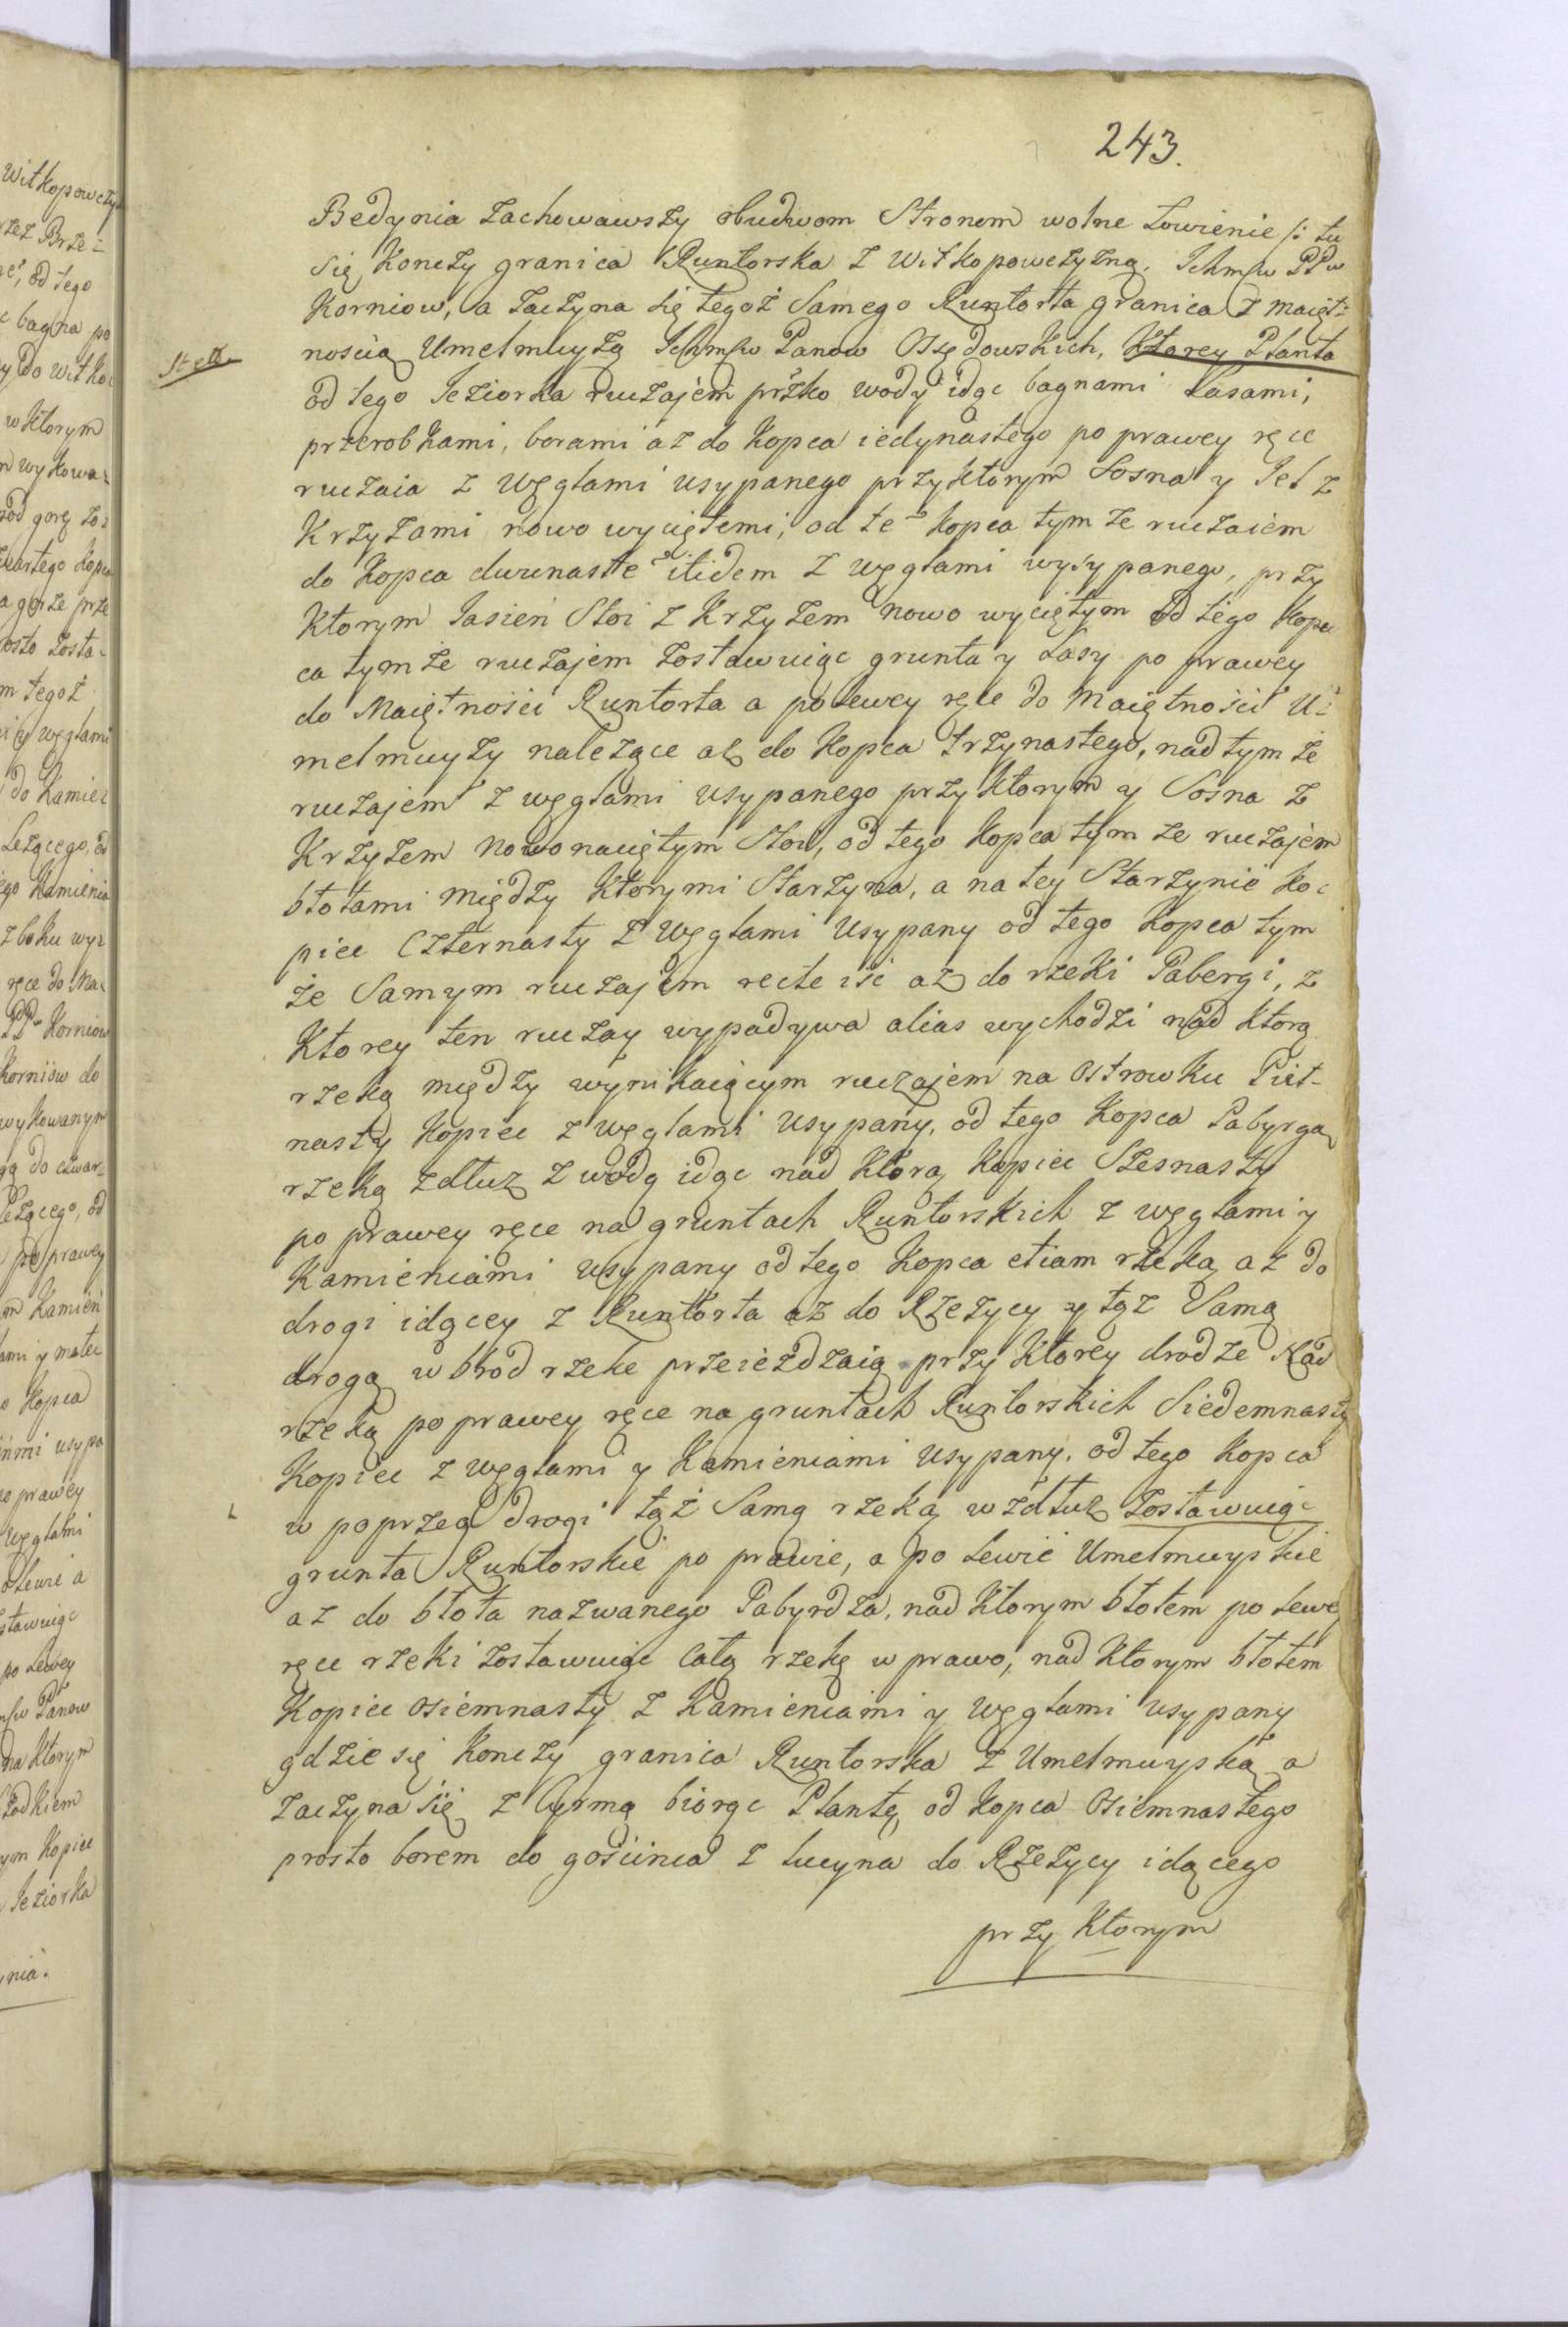 243.
Bedynia zachowawszy obudwom Stronom wolne Łowienie /: tu
się konczy granica Runtorska z Witkopowczyzną, Ichmśw PPw
Korniow, a zaczyna się tegoż Samego Runtorta granica z maięt-
nością Umelmuyżą Ichmśw Panow Oszędowskich, Ktorey Planta
od tego Jeziorka ruczajem przko wody idąc bagnami Lasami,
przerobkami, borami aż do Kopca iedynastego po prawey ręce
ruczaia z Węgłami usypanego przy ktorym Sosna y Jel z
Krzyżami nowo wyciętemi, od te° kopca tym że ruczaiem
do Kopca dwunaste° itidem z węgłami wysypanego, przy
Ktorym Jasień Stoi z Krzyżem nowo wyciętym od tego Kop
ca tymże ruczajem zostawuiąc grunta y Lasy po prawey
do Maiętności Runtorta a po lewey ręce do Maiętności U-
melmuyży należące aż do Kopca trzynastego, nad tym że
ruczajem z węgłami usypanego przy ktorym y Sosna z
Krzyżem nowonaciętym Stoi, od tego kopca tym że ruczajem
błotami między Ktorymi Starzyna, a na tey Starzynie Ko-
piec Czternasty z Węgłami Usypany od tego Kopca tym
że Samym ruczajem recte iść aż do rzeki Pabergi, z
Ktorey ten ruczay wypadywa alias wychodzi nad ktorą
rzeką między wynikaiącym ruczajem na Ostrowku Piet-
nasty Kopiec z węgłami usypany, od tego Kopca Pabyrgą
rzeką zdłuż z wodą idąc nad Ktorą Kopiec Szesnasty
po prawey ręce na gruntach Runtorskich z węgłami y
Kamieniami usypany od tego Kopca etiam rzeką aż do
drogi idącey z Runtorta aż do Rzeżycy y tąż Samą
drogą w bród rzeke przeieżdzaią przy Ktorey drodze Nad
rzeką po prawey ręce na gruntach Runtorskich Siedemnasty
Kopiec z węgłami y Kamieniami Usypany, od tego Kopca
w poprzeg drogi tąż Samą rzeką wzdłuż zostawuiąc
grunta Runtorskie po prawie, a po Lewie Umelmuyskie
aż do błota nazwanego Pabyrdza, nad Ktorym błotem po lewe
ręce rzeki zostawuiąc Całą rzekę w prawo, nad Ktorym błotem
Kopiec osiemnasty z Kamieniami y Węgłami usypany
gdzie się Konczy granica Runtorska z Umelmuyską a
zaczyna się z Cyrmą biorąc Plantę, od Kopca Osiemnastego
prosto borem do gościńca z Lucyna do Rzeżycy idącego
przy Ktorym